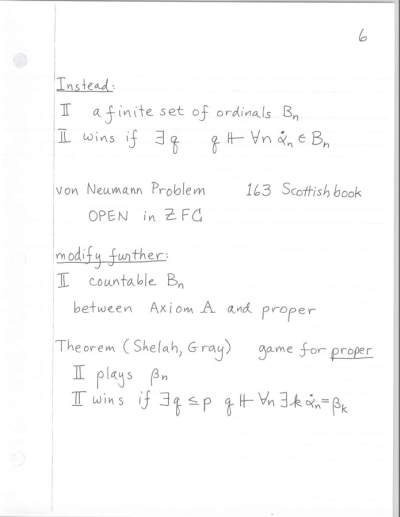 6
Instead:
II a finite set of ordinals Bₙ
II wins if ∃q q ⊩ ∀n α̇ₙ ∈ Bₙ
von Neumann Problem 163 Scottish book
OPEN in ZFC
modify further:
II countable Bₙ
between Axiom A and proper
Theorem (Shelah, Gray) game for proper
II plays βₙ
II wins if ∃q ≤ p q ⊩ ∀n ∃k α̇ₙ = βₖ